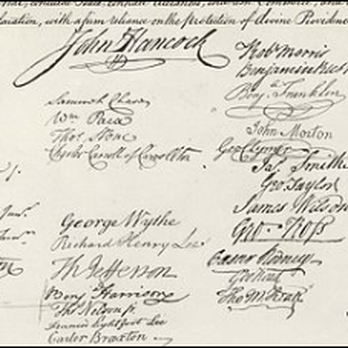 claration, with a firm reliance on the Protection of divine Providence
John Hancock
Samuel Chase
Wm Paca
Thos Stone
Charles Carroll of Carrollton
George Wythe
Richard Henry Lee
Th Jefferson
Benj Harrison
Thos Nelson jr.
Francis Lightfoot Lee
Carter Braxton
Robt Morris
Benjamin Rush
Benja Franklin
John Morton
Geo Clymer
Jas. Smith
Geo. Taylor
James Wilson
Geo. Ross
Caesar Rodney
Geo Read
Tho M:Kean